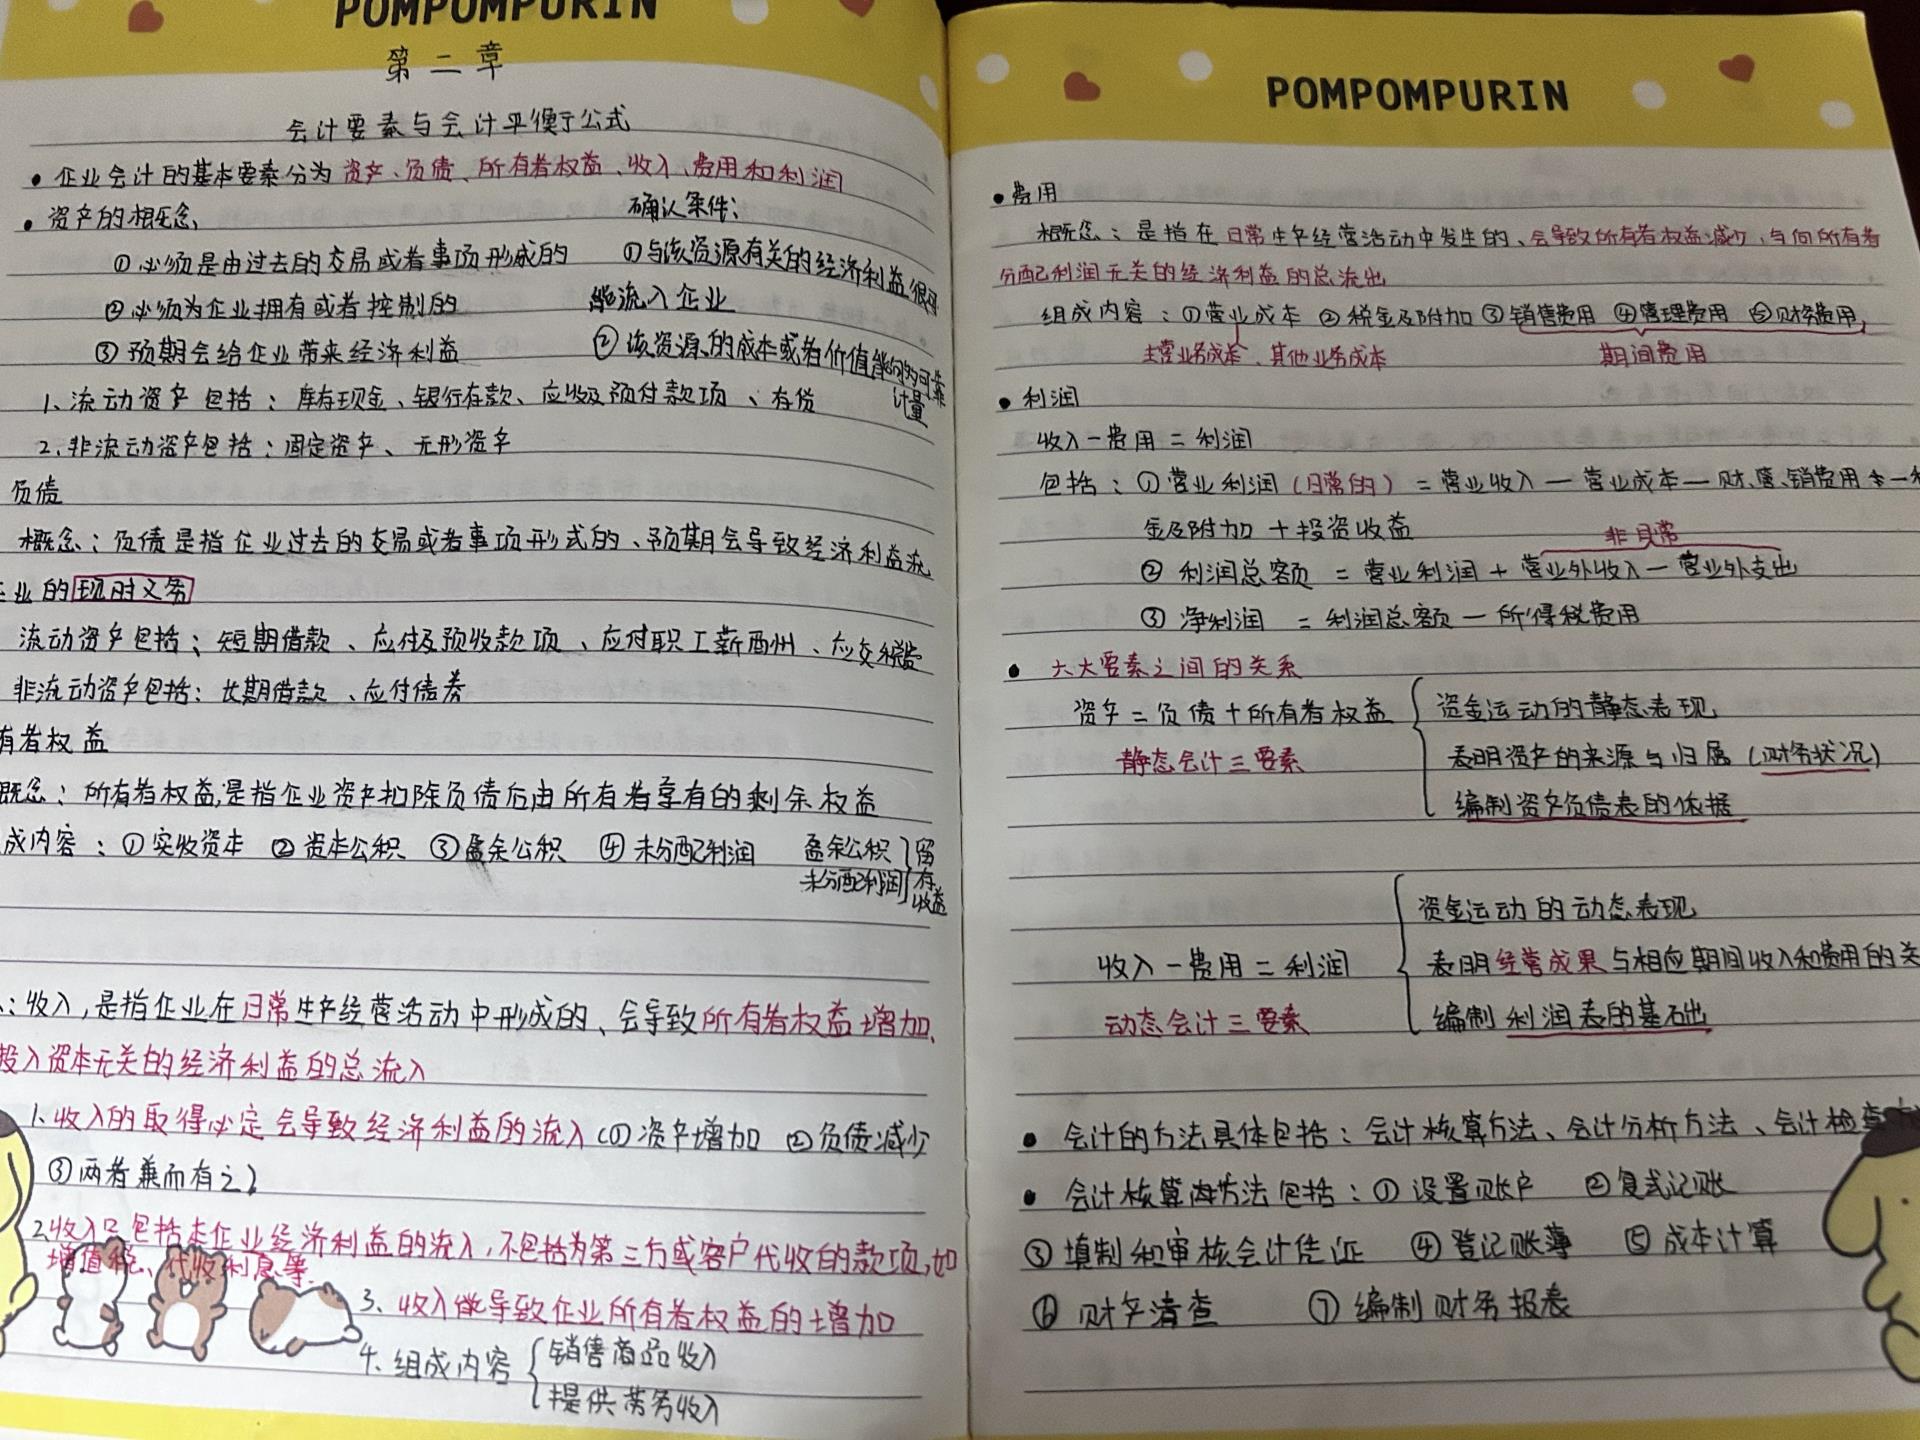 POMPOMPURIN
第二章
会计要素与会计平衡公式
• 企业会计的基本要素分为资产、负债、所有者权益、收入、费用和利润
• 资产的概念、 确认条件：
①必须是由过去的交易或者事项形成的 ①与该资源有关的经济利益很可
②必须为企业拥有或者控制的 能流入企业
③预期会给企业带来经济利益 ②该资源的成本或者价值能够可靠
计量
1、流动资产包括：库存现金、银行存款、应收及预付款项、存货
2、非流动资产包括：固定资产、无形资产
负债
概念：负债是指企业过去的交易或者事项形式的、预期会导致经济利益流
企业的现时义务
流动资产包括：短期借款、应付及预收款项、应付职工薪酬、应交税费
非流动资产包括：长期借款、应付债券
有者权益
概念：所有者权益，是指企业资产扣除负债后由所有者享有的剩余权益
成内容：①实收资本 ②资本公积 ③盈余公积 ④未分配利润 盈余公积 未分配利润 留存收益
：收入，是指企业在日常生产经营活动中形成的、会导致所有者权益增加、
投入资本无关的经济利益的总流入
1、收入的取得必定会导致经济利益的流入（①资产增加 ②负债减少
③两者兼而有之）
2、收入只包括本企业经济利益的流入，不包括为第三方或客户代收的款项，如
增值税、代收利息等.
3、收入做导致企业所有者权益的增加
4、组成内容 销售商品收入
提供劳务收入
POMPOMPURIN
• 费用
概念：是指在日常生产经营活动中发生的、会导致所有者权益减少，与向所有者
分配利润无关的经济利益的总流出
组成内容：①营业成本 ②税金及附加 ③销售费用 ④管理费用 ⑤财务费用，
主营业务成本、其他业务成本 期间费用
• 利润
收入－费用＝利润
包括：①营业利润（日常的）＝营业收入－营业成本－财、管、销费用－税
金及附加＋投资收益 非日常
②利润总额＝营业利润＋营业外收入－营业外支出
③净利润＝利润总额－所得税费用
• 六大要素之间的关系
资产＝负债＋所有者权益 资金运动的静态表现
静态会计三要素 表明资产的来源与归属（财务状况）
编制资产负债表的依据
资金运动的动态表现
收入－费用＝利润 表明经营成果与相应期间收入和费用的关
动态会计三要素 编制利润表的基础
• 会计的方法具体包括：会计核算方法、会计分析方法、会计检查方
• 会计核算方法包括：①设置账户 ②复式记账
③填制和审核会计凭证 ④登记账薄 ⑤成本计算
⑥财产清查 ⑦编制财务报表